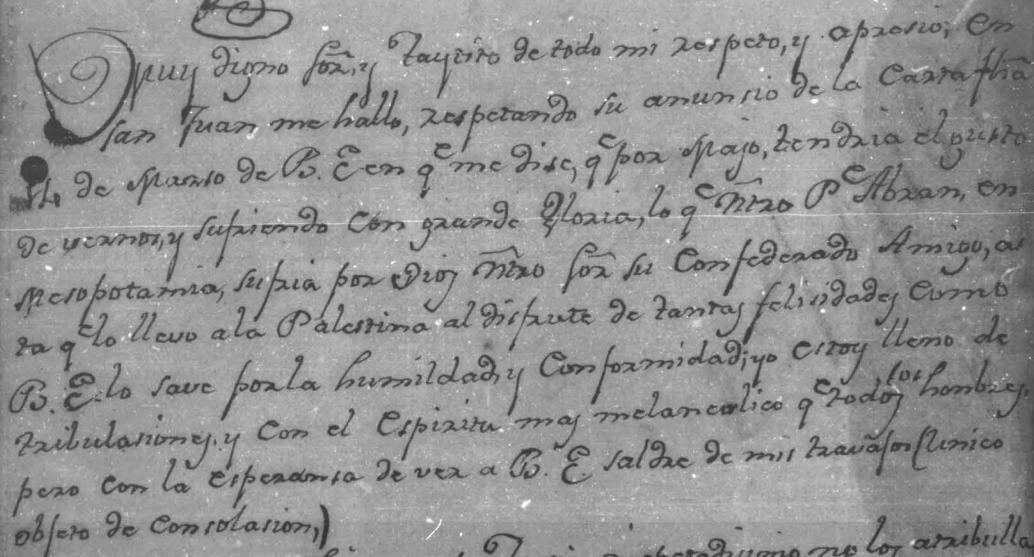 Muy digno Sor, y Taytito de todo mi respeto, y apresio; en
San Juan me hallo, respetando su anunsio de la Carta fha
14 de Marso de B. E en qe me dise, qe por Majo, tendria el gusto
de vernos, y sufriendo con grande Gloria, lo qe Ntro Pe Abran, en
Mesopotamia, sufria por Dios Ntro Sor su Confederado Amigo, as
ta qe lo llevo a la Palestina al disfrute de tantas felisidades como
B. E. lo save por la humildad, y Conformidad; yo estoy lleno de
tribulasiones, y con el Espiritu mas melancolico qe todos los hombres,
pero con la esperansa de ver a B. E saldre de mis travajos (Unico
objeto de Consolasion,)
no los atribulla